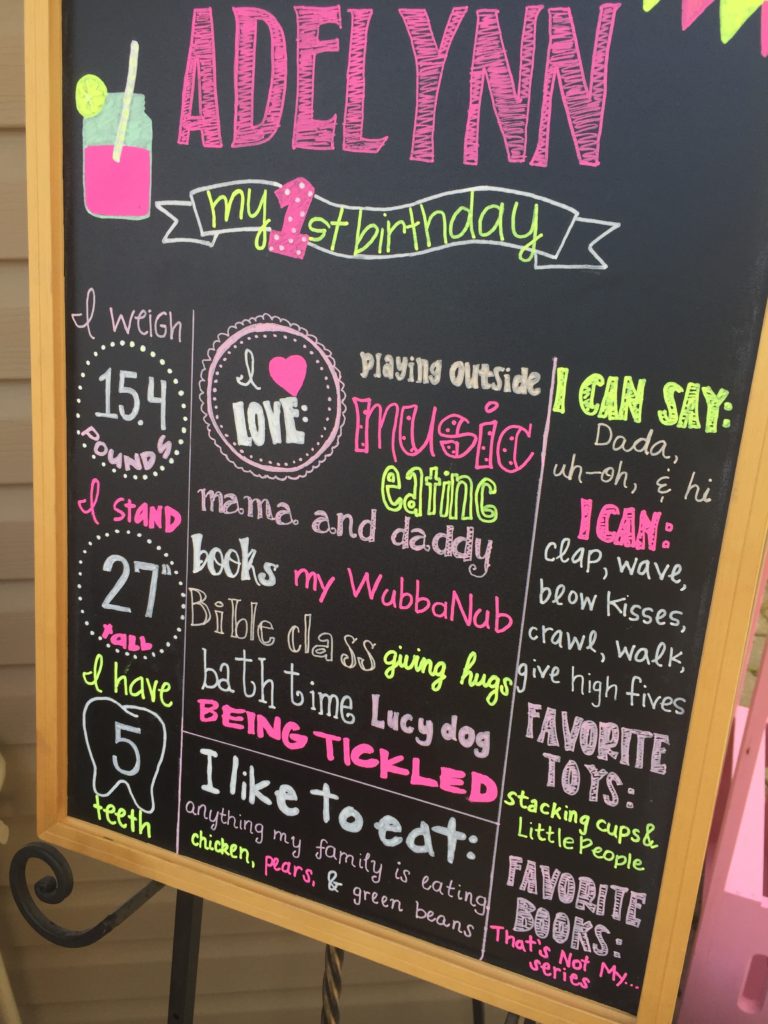 ADELYNN
my 1st birthday
I WEIGH
15.4
POUNDS
I STAND
27"
TALL
I have
5
teeth
I
LOVE:
playing outside
music
eating
mama and daddy
books my WubbaNub
Bible class giving hugs
bath time Lucy dog
BEING TICKLED
I like to eat:
anything my family is eating
chicken, pears, & green beans
I CAN SAY:
Dada,
uh-oh, & hi
I CAN:
clap, wave,
blow kisses,
crawl, walk,
give high fives
FAVORITE
TOYS:
stacking cups &
Little People
FAVORITE
BOOKS:
That's Not My...
series